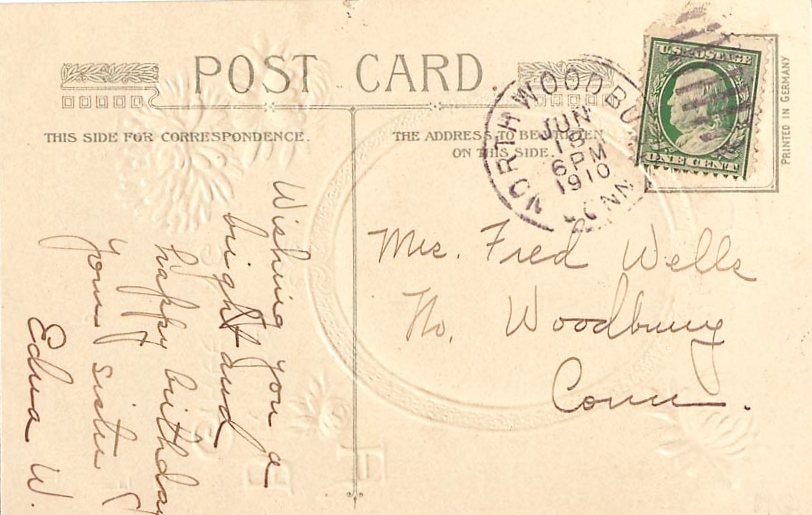 POST CARD.
THIS SIDE FOR CORRESPONDENCE.
THE ADDRESS TO BE WRITTEN
ON THIS SIDE.
NORTH WOODBU
JUN
18
6 PM
1910
CONN
U.S. POSTAGE
ONE CENT
PRINTED IN GERMANY
Mrs. Fred Wells
No. Woodbury
Conn.
Wishing you a
bright and
happy birthday
your sister
Edna W.